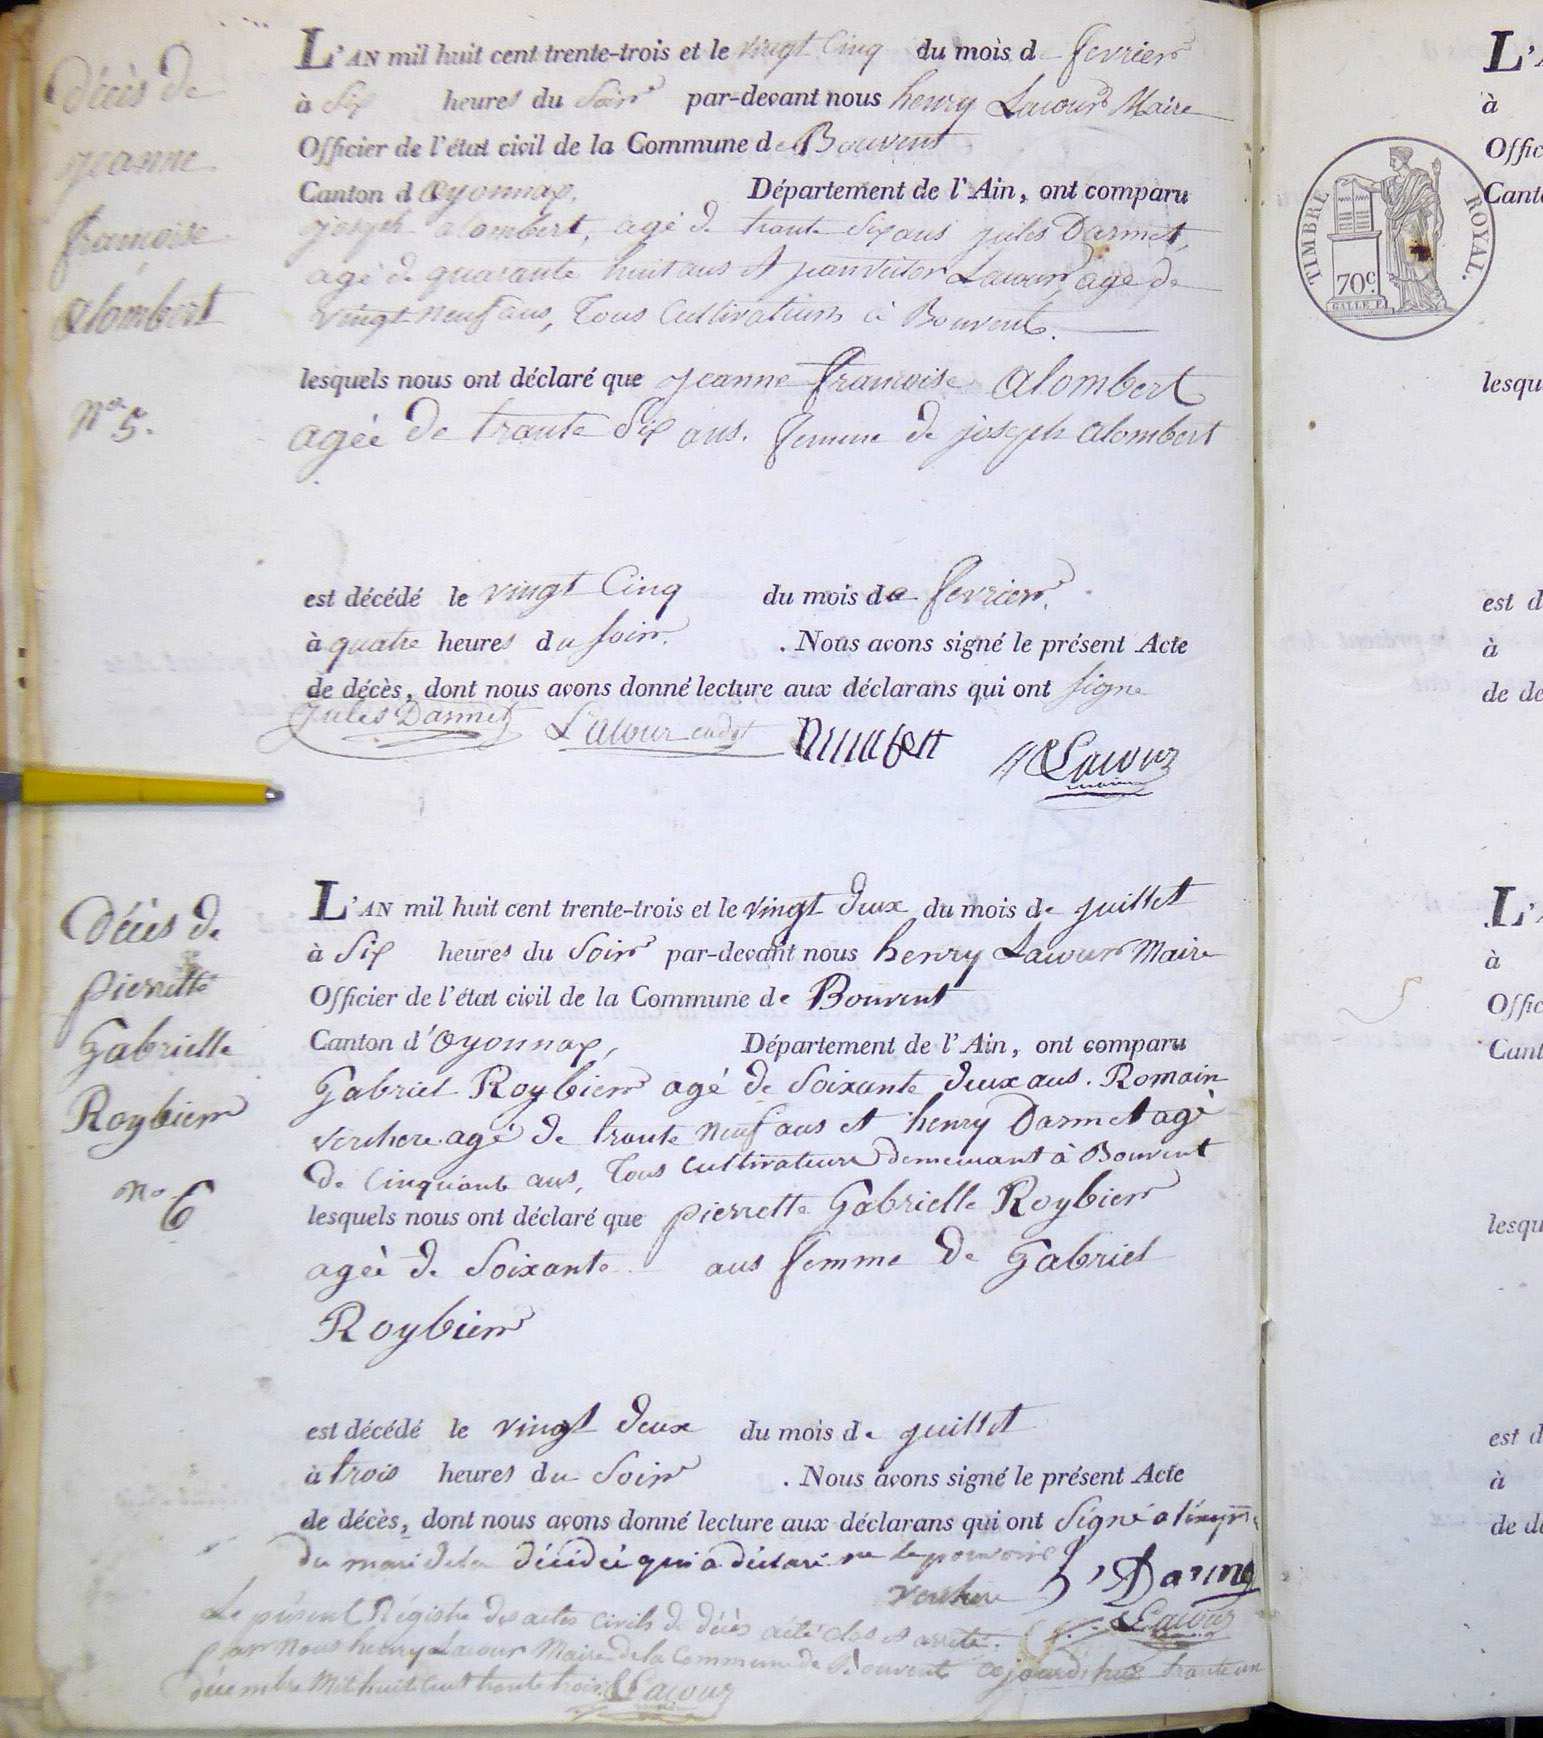 Décès de
jeanne
francoise
alombert
N° 5.
L'AN mil huit cent trente-trois et le vingt Cinq du mois de fevrier
à Six heures du Soir par-devant nous henry Lacour Maire
Officier de l'état civil de la Commune de Bouvent
Canton d Oyonnax, Département de l'Ain, ont comparu
joseph alombert, agé de trante Six ans jules Darmet,
agé de quarante huit ans et jean victor Lacour agé de
vingt neuf ans, Tous Cultivateurs à Bouvent.
lesquels nous ont déclaré que jeanne francoise alombert
agée de trante Six ans. femme de joseph alombert
est décédé le vingt Cinq du mois de fevrier.
à quatre heures du soir. . Nous avons signé le présent Acte
de décès, dont nous avons donné lecture aux déclarans qui ont signe
Jules Darmet Lacour cadet H Lacour
maire
Décès de
pierrette
Gabrielle
Roybier
N° 6
L'AN mil huit cent trente-trois et le vingt deux du mois de juillet
à Six heures du Soir par-devant nous henry Lacour Maire
Officier de l'état civil de la Commune de Bouvent
Canton d'Oyonnax, Département de l'Ain, ont comparu
Gabriel Roybier agé de Soixante deux ans. Romain
verchere agé de trante neuf ans et henry Darmet agé
de Cinquante ans, Tous Cultivateurs demeurant à Bouvent
lesquels nous ont déclaré que pierrette Gabrielle Roybier
agée de Soixante ans femme de Gabriel
Roybier
est décédé le vingt deux du mois de juillet
à trois heures du Soir . Nous avons signé le présent Acte
de décès, dont nous avons donné lecture aux déclarans qui ont Signé
du mari de la décédé qui a déclaré ne le pouvoir
verchere Darmet
Lacour
Le présent Régistre des actes Civils de décès a été clos et arreté.
par Nous henry Lacour Maire de la Commune de Bouvent ajourdhui trante un
décembre Mil huit cent trante trois. Lacour
TIMBRE ROYAL.
70c.
GALLE F.
L'
à
Offic
Cant
lesqu
est d
à
de de
L'
à
Offic
Cant
lesqu
est d
à
de d